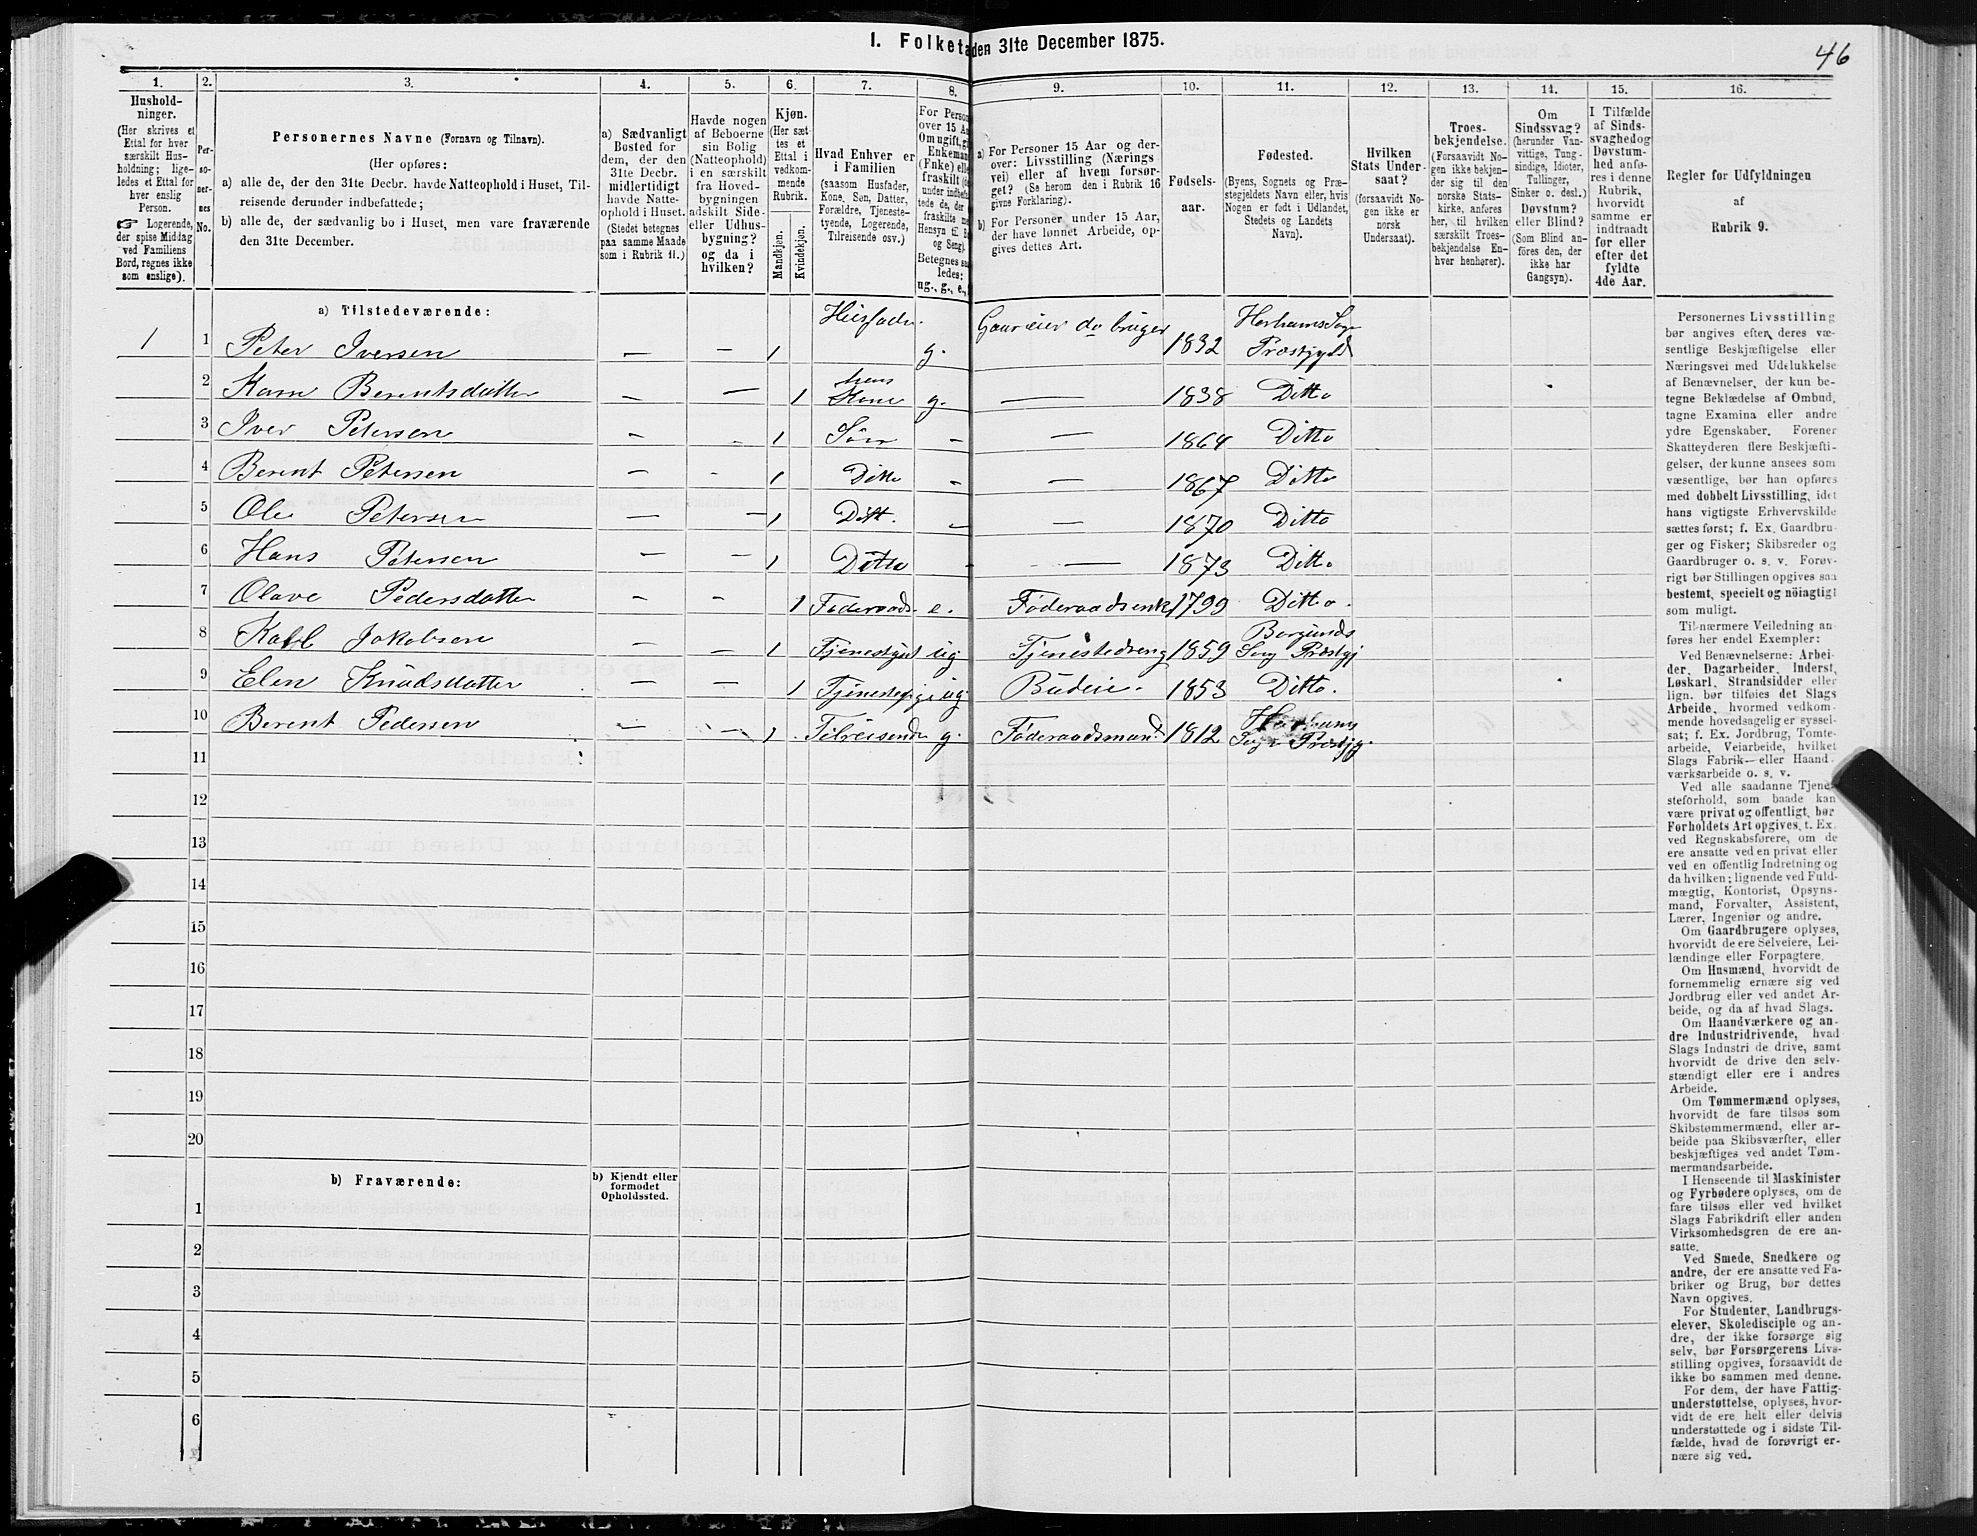 I. Folketa den 31te December 1875.
46
1. 2. 3. 4. 5. 6. 7. 8. 9. 10. 11. 12. 13. 14. 15. 16.
Hushold-
ninger.
(Her skrives et
Ettal for hver
særskilt Hus-
holdning; lige-
ledes et Ettal for
hver enslig
Person.
☞ Logerende,
der spise Middag
ved Familiens
Bord, regnes ikke
som enslige).
Per-
so-
ner-
nes
No.
Personernes Navne (Fornavn og Tilnavn).
(Her opføres:
a) alle de, der den 31te Decbr. havde Natteophold i Huset, Til-
reisende derunder indbefattede;
b) alle de, der sædvanlig bo i Huset, men vare fraværende
den 31te December.
a) Sædvanligt
Bosted for
dem, der den
31te Decbr.
midlertidigt
havde Natte-
ophold i Huset.
(Stedet betegnes
paa samme Maade
som i Rubrik 11.)
Havde nogen
af Beboerne
sin Bolig
(Natteophold)
i en særskilt
fra Hoved-
bygningen
adskilt Side-
eller Udhus-
bygning?
og da i
hvilken?
Kjøn.
(Her sæt-
tes et
Ettal i
vedkom-
mende
Rubrik.
Mandkjøn.
Kvindekjøn.
Hvad Enhver er
i Familien
(saasom Husfader,
Kone, Søn, Datter,
Forældre, Tjeneste-
tyende, Logerende,
Tilreisende osv.)
For Person
over 15 Aa
Om ugift, g
Enkeman
(Enke) elle
fraskilt (
under indbe
tede de, der
fraskilte m
Hensyn til B
og Seng).
Betegnes sa
ledes:
ug., g., e.,
a) For Personer 15 Aar og der-
over: Livsstilling (Nærings
vei) eller af hvem forsør-
get? (Se herom den i Rubrik 16
givne Forklaring).
b) For Personer under 15 Aar,
der have lønnet Arbeide, op-
gives dettes Art.
Fødsels-
aar.
Fødested.
(Byens, Sognets og Præ-
stegjeldets Navn eller, hvis
Nogen er født i Udlandet,
Stedets og Landets
Navn).
Hvilken
Stats Under-
saat?
(forsaavidt No-
gen ikke er
norsk
Undersaat).
Troes-
bekjendelse.
(Forsaavidt No-
gen ikke bekjen-
der sig til den
norske Stats-
kirke, anføres
her, til hvilken
særskilt Troes-
bekjendelse En-
hver henhører).
Om
Sindssvag?
(herunder Van-
vittige, Tung-
sindige, Idioter,
Tullinger,
Sinker o. desl.)
Døvstum?
eller Blind?
(Som Blind an-
føres den, der
ikke har
Gangsyn).
I Tilfælde
af Sinds-
svaghed og
Døvstum-
hed anfø-
res i denne
Rubrik,
hvorvidt
samme er
indtraadt
før eller
efter det
fyldte
4de Aar.
Regler for Udfyldningen
af
Rubrik 9.
a) Tilstedeværende:
1 1 Peter Iversen — — 1 Husfader g. Gaareier do bruger 1832 Harhams Sogn Præstgjeld
2 Karn Berentsdatter — — 1 hans Kone g. — 1838 Ditto
3 Iver Petersen — 1 Søn — — 1864 Ditto
4 Berent Petersen — 1 Ditto — — 1867 Ditto
5 Ole Petersen — — 1 Ditt. — — 1870 Ditto
6 Hans Petersen — — 1 Ditto — 1873 Ditto
7 Olave Pedersdatter — — 1 Føderaads- e. Føderaadsenk 1799 Ditto.
8 Karl Jakobsen — — 1 Tjenestgut ug Tjenestedreng 1859 Borgunds Sog Præstgj
9 Elen Knudsdatter — — 1 Tjenestepige ug. Budeie. 1853 Ditto.
10 Berent Pedersen — — 1 Tilreisende g. Føderaadsmand 1812 Harhams Sogn Præstgj.
11
12
13
14
15
16
17
18
19
20
b) Fraværende:
b) Kjendt eller
formodet
Opholdssted.
1
2
3
4
5
6
Personernes Livsstilling
bør angives efter deres væ-
sentlige Beskjæftigelse eller
Næringsvei med Udelukkelse
af Benævnelser, der kun be-
tegne Beklædelse af Ombud,
tagne Examina eller andre
ydre Egenskaber. Forener
Skatteyderen flere Beskjæfti-
gelser, der kunne ansees som
væsentlige, bør han opføres
med dobbelt Livsstilling, idet
hans vigtigste Erhvervskilde
sættes først; f. Ex. Gaardbru-
ger og Fisker; Skibsreder og
Gaardbruger o. s. v. Forøv-
rigt bør Stillingen opgives saa
bestemt, specielt og nøiagtigt
som muligt.
Til nærmere Veiledning an-
føres her endel Exempler:
Ved Benævnelserne: Arbei-
der, Dagarbeider, Inderst,
Løskarl, Strandsidder eller
lign. bør tilføies det Slags
Arbeide, hvormed vedkom-
mende hovedsagelig er syssel-
sat; f. Ex. Jordbrug, Tomte-
arbeide, Veiarbeide, hvilket
Slags Fabrik- eller Haand-
værksarbeide o. s. v.
Ved alle saadanne Tjene-
steforhold, som baade kan
være privat og offentligt, bør
Forholdets Art opgives, t. Ex.
ved Regnskabsførere, om de
ere ansatte ved en privat eller
ved en offentlig Indretning og
da hvilken; lignende ved Fuld-
mægtig, Kontorist, Opsyns-
mand, Forvalter, Assistent,
Lærer, Ingeniør og andre.
Om Gaardbrugere oplyses,
hvorvidt de ere Selveiere, Lei-
lændinge eller Forpagtere.
Om Husmænd, hvorvidt de
fornemmelig ernære sig ved
Jordbrug eller ved andet Ar-
beide, og da af hvad Slags.
Om Haandværkere og an-
dre Industridrivende, hvad
Slags Industri de drive, samt
hvorvidt de drive den selv-
stændigt eller ere i andres
Arbeide.
Om Tømmermænd oplyses,
hvorvidt de fare tilsøs som
Skibstømmermænd, eller ar-
beide paa Skibsværfter, eller
beskjæftiges ved andet Tøm-
mermandsarbeide.
I Henseende til Maskinister
og Fyrbødere oplyses, om de
fare tilsøs eller ved hvilket
Slags Fabrikdrift eller anden
Virksomhedsgren de ere an-
satte.
Ved Smede, Snedkere og
andre, der ere ansatte ved Fa-
briker og Brug, bør dettes
Navn opgives.
For Studenter, Landbrugs-
elever, Skoledisciple og an-
dre, der ikke forsørge sig
selv, bør Forsørgerens Livs-
stilling opgives, forsaavidt de
ikke bo sammen med denne.
For dem, der have Fattig-
understøttelse, oplyses, hvor-
vidt de ere helt eller delvis
understøttede og i sidste Til-
fælde, hvad de forøvrigt er-
nære sig ved.